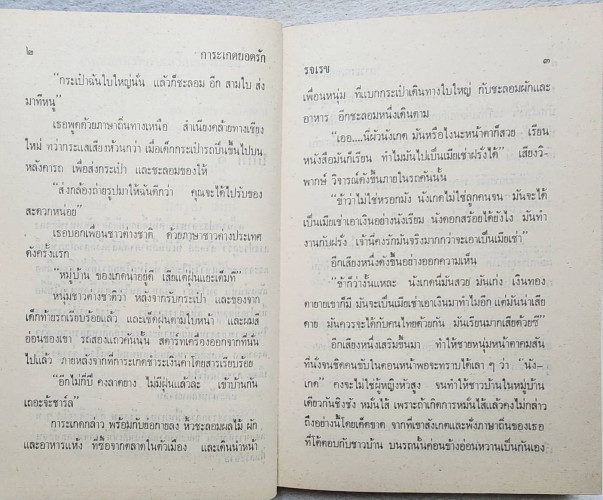 ๒
การะเกดยอดรัก
"กระเป๋าฉันใบใหญ่นั่น แล้วก็ชะลอม อีก สามใบ ส่ง
มาทีหนู"
เธอพูดด้วยภาษาถิ่นทางเหนือ สำเนียงคล้ายทางเชียง
ใหม่ ทว่ากระแสเสียงห้วนกว่า เมื่อเด็กกระเป๋ารถถีบขึ้นไปบน
หลังคารถ เพื่อส่งกระเป๋า และชะลอมของให้
"ส่งกล้องถ่ายรูปมาให้ฉันดีกว่า คุณจะได้ไปรับของ
สะดวกหน่อย"
เธอบอกเพื่อนชาวต่างชาติ ด้วยภาษาชาวต่างประเทศ
ดังครั้งแรก
"หมู่บ้าน ของเกดน่าอยู่ดี เสียแต่ฝุ่นแยะเต็มที"
หนุ่มชาวต่างชาติว่า หลังจากรับกระเป๋า และของจาก
เด็กท้ายรถเรียบร้อยแล้ว และเช็ดฝุ่นตามใบหน้า และผมสี
อ่อนของเขา รถสองแถวคันนั้น สตาร์ทเครื่องออกจากที่นั่น
ไปแล้ว ภายหลังจากที่การะเกดชำระเงินค่าโดยสารเรียบร้อย
"อีกไม่กี่ปี คงลาดยาง ไม่มีฝุ่นแล้วล่ะ เข้าบ้านกัน
เถอะจ้ะชาร์ล"
การะเกดกล่าว พร้อมกับย่อกายลง หิ้วชะลอมผลไม้ ผัก
และอาหารแห้ง ที่ซื้อจากตลาดในตัวเมือง และเดินนำหน้า
รจเรข
๓
เพื่อนหนุ่ม ที่แบกกระเป๋าเดินทางใบใหญ่ กับชะลอมผักและ
อาหาร อีกชะลอมหนึ่งเดินตาม
"เออ....นี่ผัวนังเกด มันหรือไงนะหน้าตาก็สวย เรียน
หนังสือมันก็เรียน ทำไมมันไปเป็นเมียเช่าฝรั่งได้" เสียงวิ-
พากษ์ วิจารณ์ดังขึ้นภายในรถคันนั้น
"ข้าว่าไม่ใช่หรอกมัง นังเกดไม่ใช่ลูกคนจน มันจะได้
เป็นเมียเช่าเอาเงินอย่างนังเรียม นังดอกสร้อยได้ยังไง มันทำ
งานกับฝรั่ง เจ้านี่คงรักมันจริงมากกว่าจะเอาเป็นเมียเช่า"
อีกเสียงหนึ่งดังขึ้นอย่างออกความเห็น
"ข้าก็ว่างั้นแหละ นังเกดนี่มันสวย มันเก่ง เงินทอง
ตายายเขาก็มี มันจะเป็นเมียเช่าเอาเงินมาทำไมอีก แต่มันน่าเสีย
ดาย มันควรจะได้กับคนไทยด้วยกัน มันเรียนมากเสียด้วยซี"
อีกเสียงหนึ่งเสริมขึ้นมา ทำให้ชายหนุ่มหน้าตาคมสัน
ที่นั่งจนชิดคนขับในตอนหน้าพอจะทราบได้เลา ๆ ว่า "นัง-
เกด" คงจะไม่ใช่ผู้หญิงหัวสูง จนทำให้ชาวบ้านในหมู่บ้าน
เดียวกันชิงชัง หมั่นไส้ เพราะถ้าเกิดการหมั่นไส้แล้วคงไม่กล่าว
ถึงอย่างนี้โดยเด็ดขาด จากที่เขาสังเกตและฟังภาษาถิ่นของเธอ
ที่โต้ตอบกับชาวบ้าน บนรถนั้นค่อนข้างอ่อนหวานเป็นกันเอง